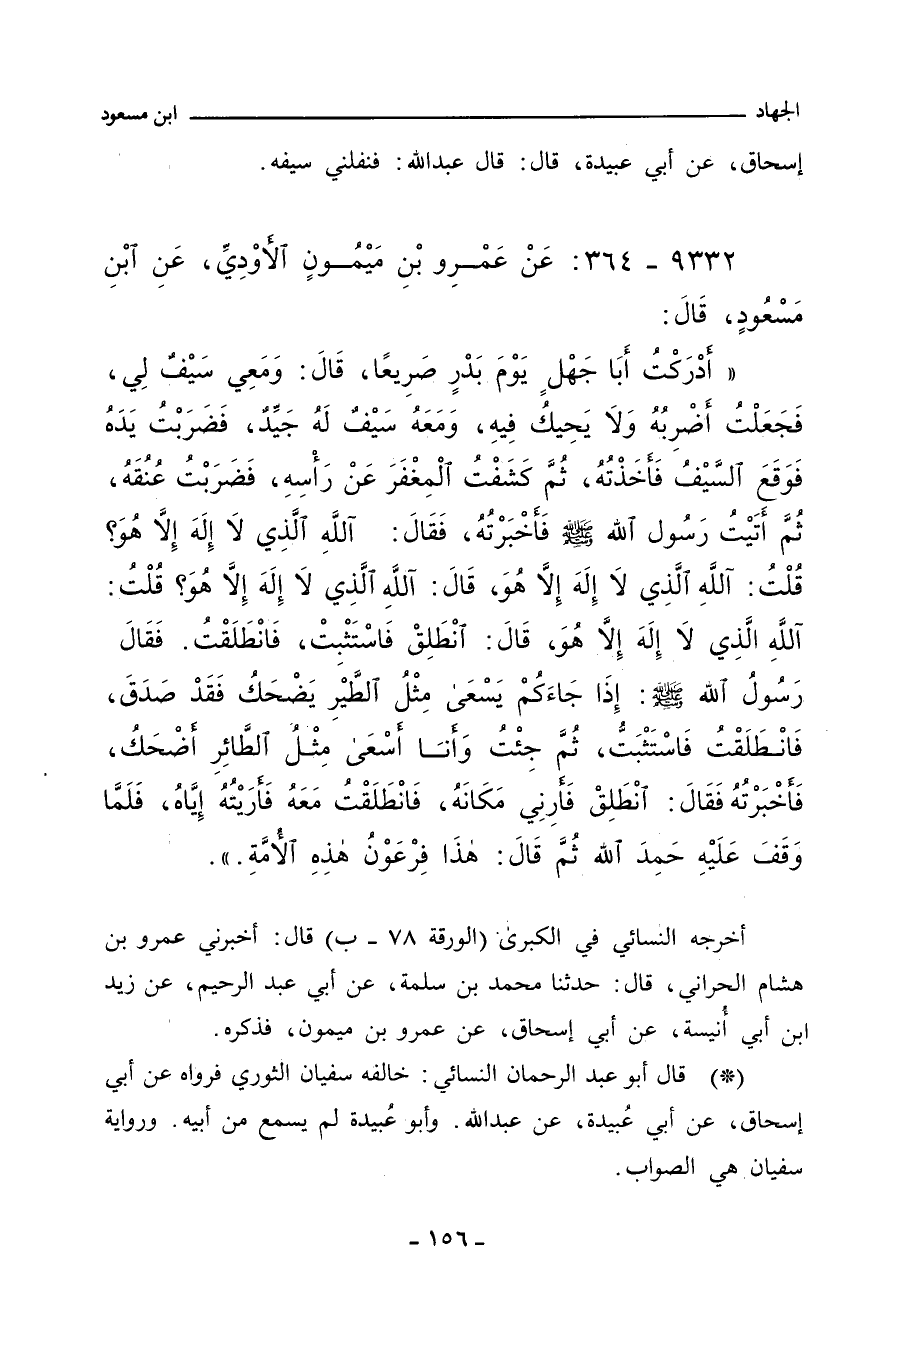 الجهاد ـــــــــــــــــــــ ابن مسعود
إسحاق، عن أبي عبيدة، قال: قال عبدالله: فنفلني سيفه.
٩٣٣٢ - ٣٦٤: عَنْ عَمْـرِو بْنِ مَيْمُـونٍ ٱلْأَوْدِيِّ، عَنِ ٱبْنِ
مَسْعُودٍ، قَالَ:
« أَدْرَكْتُ أَبَا جَهْلٍ يَوْمَ بَدْرٍ صَرِيعًا، قَالَ: وَمَعِي سَيْفٌ لِي،
فَجَعَلْتُ أَضْرِبُهُ وَلَا يَحِيكُ فِيهِ، وَمَعَهُ سَيْفٌ لَهُ جَيِّدٌ، فَضَرَبْتُ يَدَهُ
فَوَقَعَ ٱلسَّيْفُ فَأَخَذْتُهُ، ثُمَّ كَشَفْتُ ٱلْمِغْفَرَ عَنْ رَأْسِهِ، فَضَرَبْتُ عُنُقَهُ،
ثُمَّ أَتَيْتُ رَسُولَ ٱللهِ ﷺ فَأَخْبَرْتُهُ، فَقَالَ: آللهِ ٱلَّذِي لَا إِلَهَ إِلَّا هُوَ؟
قُلْتُ: آللهِ ٱلَّذِي لَا إِلَهَ إِلَّا هُوَ، قَالَ: آللهِ ٱلَّذِي لَا إِلَهَ إِلَّا هُوَ؟ قُلْتُ:
آللهِ الَّذِي لَا إِلَهَ إِلَّا هُوَ، قَالَ: ٱنْطَلِقْ فَاسْتَثْبِتْ، فَانْطَلَقْتُ. فَقَالَ
رَسُولُ ٱللهِ ﷺ: إِذَا جَاءَكُمْ يَسْعَىٰ مِثْلُ ٱلطَّيْرِ يَضْحَكُ فَقَدْ صَدَقَ،
فَانْـطَلَقْتُ فَاسْتَثْبَتُّ، ثُمَّ جِئْتُ وَأَنَـا أَسْعَىٰ مِثْـلُ ٱلطَّائِرِ أَضْحَكُ،
فَأَخْبَرْتُهُ فَقَالَ: ٱنْطَلِقْ فَأَرِنِي مَكَانَهُ، فَانْطَلَقْتُ مَعَهُ فَأَرَيْتُهُ إِيَّاهُ، فَلَمَّا
وَقَفَ عَلَيْهِ حَمِدَ ٱللهَ ثُمَّ قَالَ: هٰذَا فِرْعَوْنُ هٰذِهِ ٱلْأُمَّةِ.».
أخرجه النسائي في الكبرىٰ (الورقة ٧٨ - ب) قال: أخبرني عمرو بن
هشام الحراني، قال: حدثنا محمد بن سلمة، عن أبي عبد الرحيم، عن زيد
ابن أبي أُنيسة، عن أبي إسحاق، عن عمرو بن ميمون، فذكره.
(*) قال أبو عبد الرحمان النسائي: خالفه سفيان الثوري فرواه عن أبي
إسحاق، عن أبي عُبيدة، عن عبدالله. وأبو عُبيدة لم يسمع من أبيه. ورواية
سفيان هي الصواب.
- ١٥٦ -